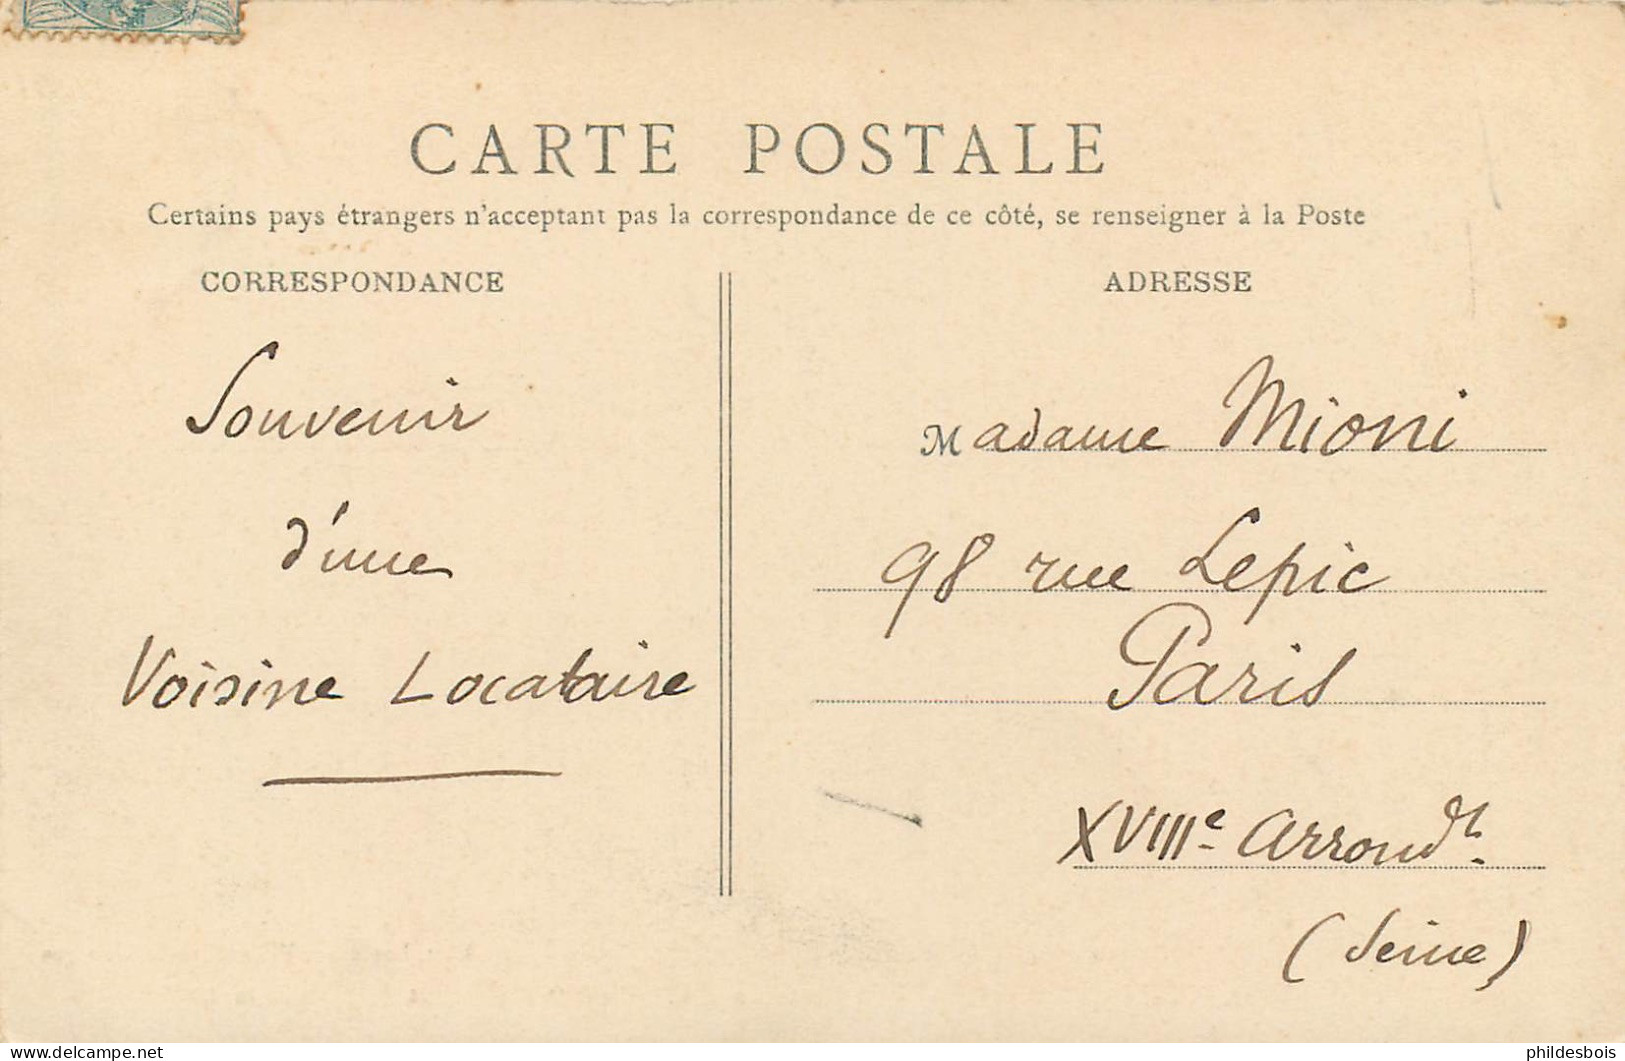 CARTE POSTALE
Certains pays étrangers n'acceptant pas la correspondance de ce côté, se renseigner à la Poste
CORRESPONDANCE
Souvenir
d'une
Voisine Locataire
ADRESSE
Madame Mioni
98 rue Lepic
Paris
XVIIIe Arrondt.
(Seine)
www.delcampe.net
phildesbois